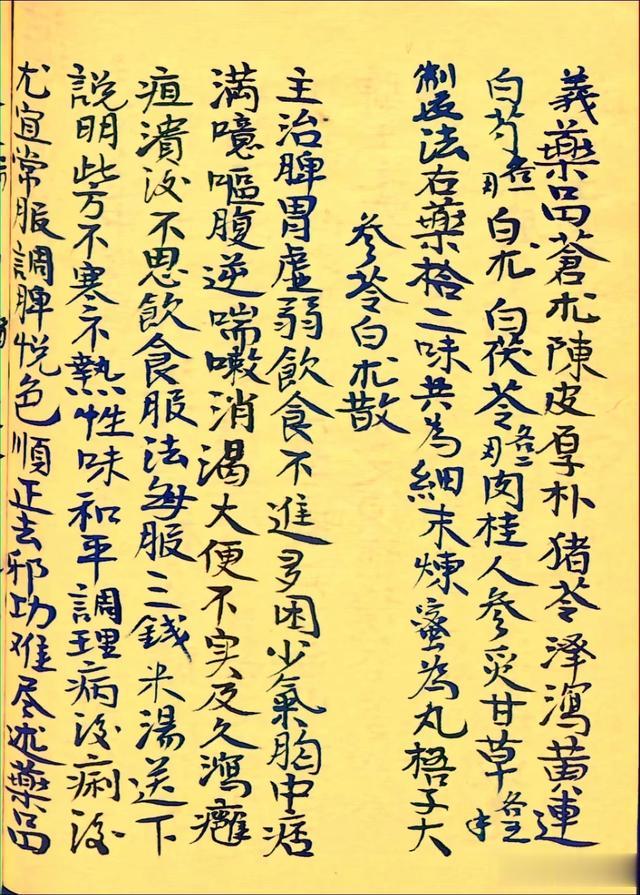 義藥品蒼朮陳皮厚朴猪苓泽瀉黄連
白芍各一两白朮白茯苓各二两肉桂人参炙甘草各五
製法右藥拾二味共為細末煉蜜為丸梧子大
参苓白朮散
主治脾胃虚弱飲食不進多困少氣胸中痞
满噫嘔腹逆喘嗽消渴大便不实及久瀉癰
疽潰後不思飲食服法每服三錢米湯送下
說明此方不寒不熱性味和平調理病後痢後
尤宜常服調脾悦色順正去邪功难尽述藥品